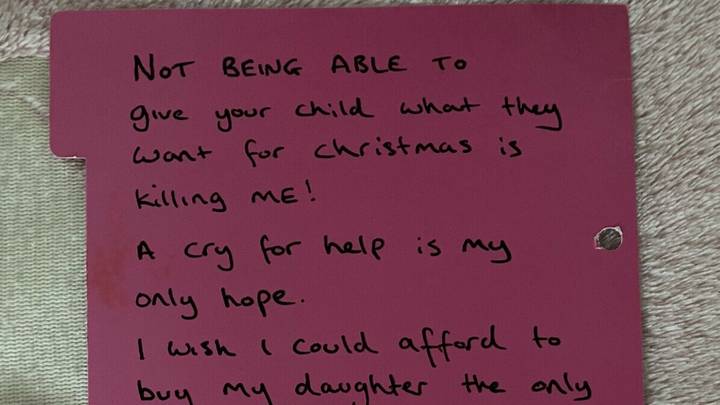 NOT BEING ABLE TO
give your child what they
want for christmas is
killing ME!
A cry for help is my
only hope.
I wish I could afford to
buy my daughter the only